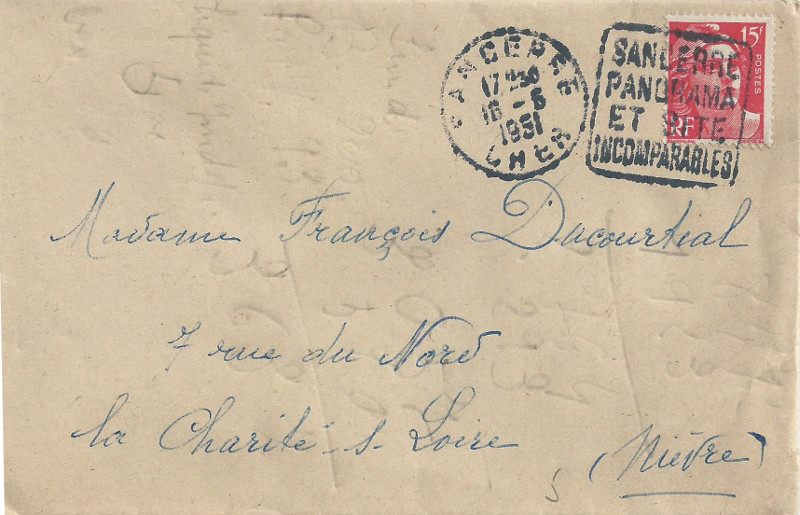 SANCERRE
17 30
16 - 5
1951
CHER
SANCERRE
PANORAMA
ET SITE
INCOMPARABLES
15F
POSTES
RF
Madame François Ducourtial
7 rue du Nord
la Charité-s-Loire
(Nièvre)